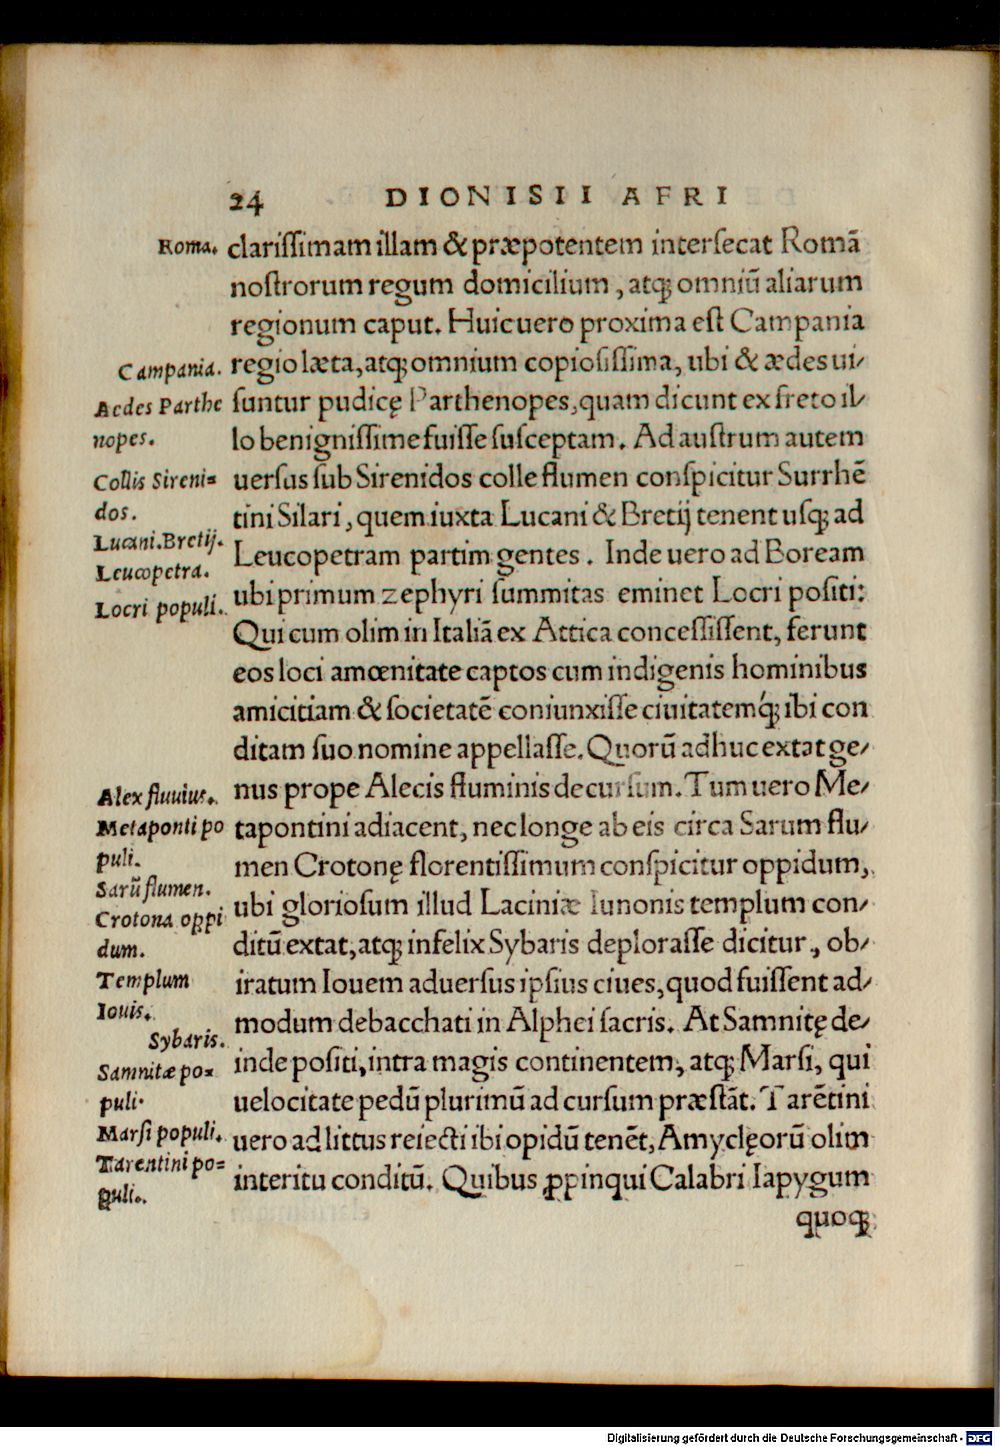 24 DIONISII AFRI
Roma.
clariſſimam illam & præpotentem interſecat Romā
noſtrorum regum domicilium, atq; omniū aliarum
regionum caput. Huic uero proxima eſt Campania
Campania.
regio læta, atq; omnium copioſiſſima, ubi & ædes ui/
Aedes Parthe
ſuntur pudicę Parthenopes, quam dicunt ex freto il/
nopes.
lo benigniſſime fuiſſe ſuſceptam. Ad auſtrum autem
Collis Sireni=
uerſus ſub Sirenidos colle flumen conſpicitur Surrhē
dos.
tini Silari, quem iuxta Lucani & Bretij tenent uſq; ad
Lucani. Bretij.
Leucopetra.
Leucopetram partim gentes. Inde uero ad Boream
Locri populi.
ubi primum zephyri ſummitas eminet Locri poſiti:
Qui cum olim in Italiā ex Attica conceſſiſſent, ferunt
eos loci amœnitate captos cum indigenis hominibus
amicitiam & ſocietatē coniunxiſſe ciuitatemq́; ibi con
ditam ſuo nomine appellaſſe. Quorū adhuc extat ge/
Alex fluuius.
nus prope Alecis fluminis decurſum. Tum uero Me/
Metaponti po
tapontini adiacent, nec longe ab eis circa Sarum flu/
puli.
men Crotonę florentiſſimum conſpicitur oppidum,
Sarū flumen.
Crotona oppi
ubi glorioſum illud Laciniæ Iunonis templum con/
dum.
ditū extat, atq; infelix Sybaris deploraſſe dicitur, ob/
Templum
iratum Iouem aduerſus ipſius ciues, quod fuiſſent ad/
Iouis.
modum debacchati in Alphei ſacris. At Samnitę de/
Sybaris.
Samnitæ po=
inde poſiti, intra magis continentem, atq; Marſi, qui
puli.
uelocitate pedū plurimū ad curſum præſtāt. Tarētini
Marſi populi.
uero ad littus reiecti ibi opidū tenēt, Amyclęorū olim
Tarentini po=
puli.
interitu conditū. Quibus ꝓpinqui Calabri Iapygum
quoq;
Digitalisierung gefördert durch die Deutsche Forschungsgemeinschaft - DFG